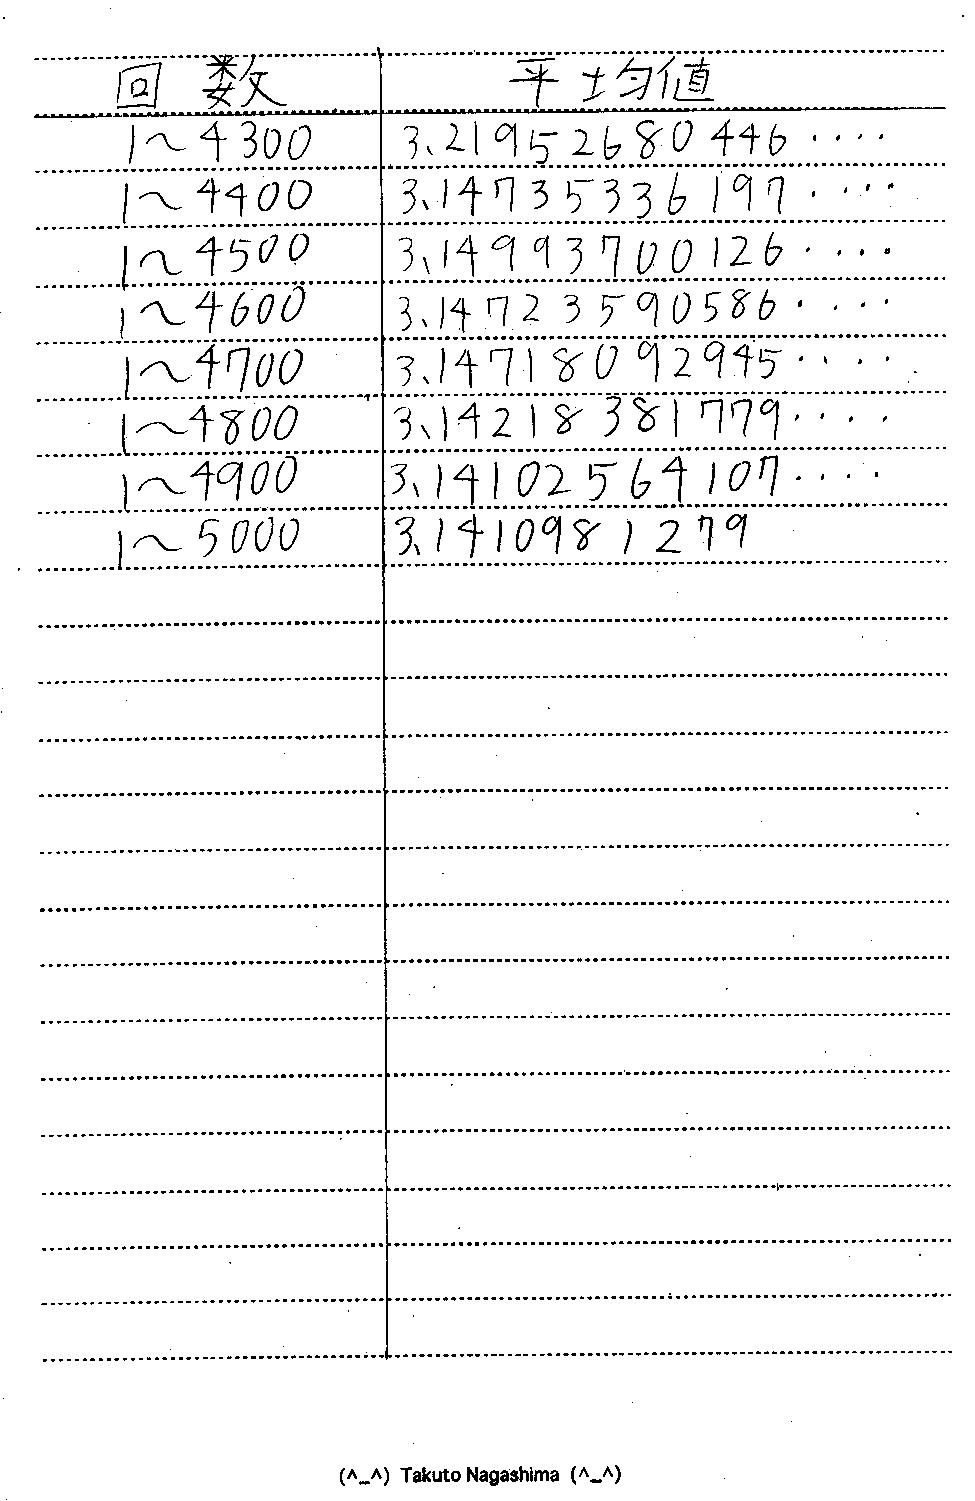 回 数 平均値
1〜4300 3.21952680446‥‥
1〜4400 3.14735336197‥‥
1〜4500 3.14993700126‥‥
1〜4600 3.14723590586‥‥
1〜4700 3.14718092945‥‥
1〜4800 3.14218381779‥‥
1〜4900 3.14102564107‥‥
1〜5000 3.1410981279
(^_^) Takuto Nagashima (^_^)